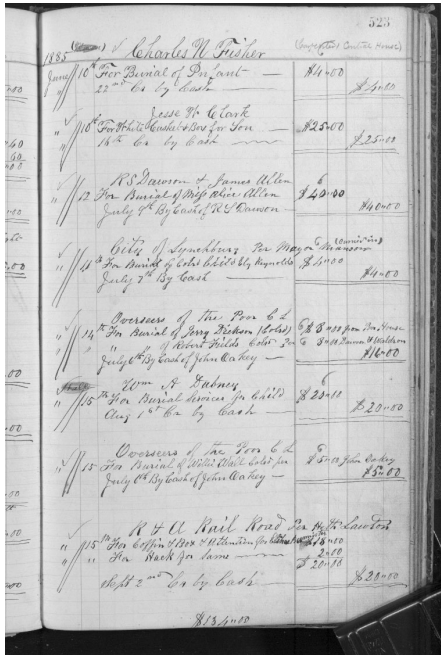 523
1885 Charles N. Fisher (Carpenter Central House)
June 10th For Burial of Infant — $4.00
22nd Cr by Cash — $4.00
Jesse N. Clark
" 10th For White Casket & Box for Son — $25.00
16th Cr by Cash — $25.00
R S Dawson & James Allen
" 12 For Burial of Miss Allen $40.00
July 8th By Cash of R S Dawson — $40.00
City of Lynchburg Per Mayor Manson
" For Burial of Cold Child by Reynolds $4.00
July 7th By Cash $4.00
Overseers of the Poor C L
" 14th For Burial of Jerry Dickson (Cold) $8.00 from Po. House
" " of Robert Fields Cold 8.00
July 6th By Cash of John Oakey — $16.00
Wm A Dabney
" 15th For Burial Services for Child $20.00
Aug 1st Cr by Cash — $20.00
Overseers of the Poor C L
" 15 For Burial of Wait Cold per $5.00 John Oakey
July 6th By Cash of John Oakey — $5.00
R & A Rail Road Per Lawton
" 15th For Coffin & Box & Attention for 18.00
" " For Hack for Same — 2.00
$20.00
Sept 2nd Cr by Cash $20.00
$134.00